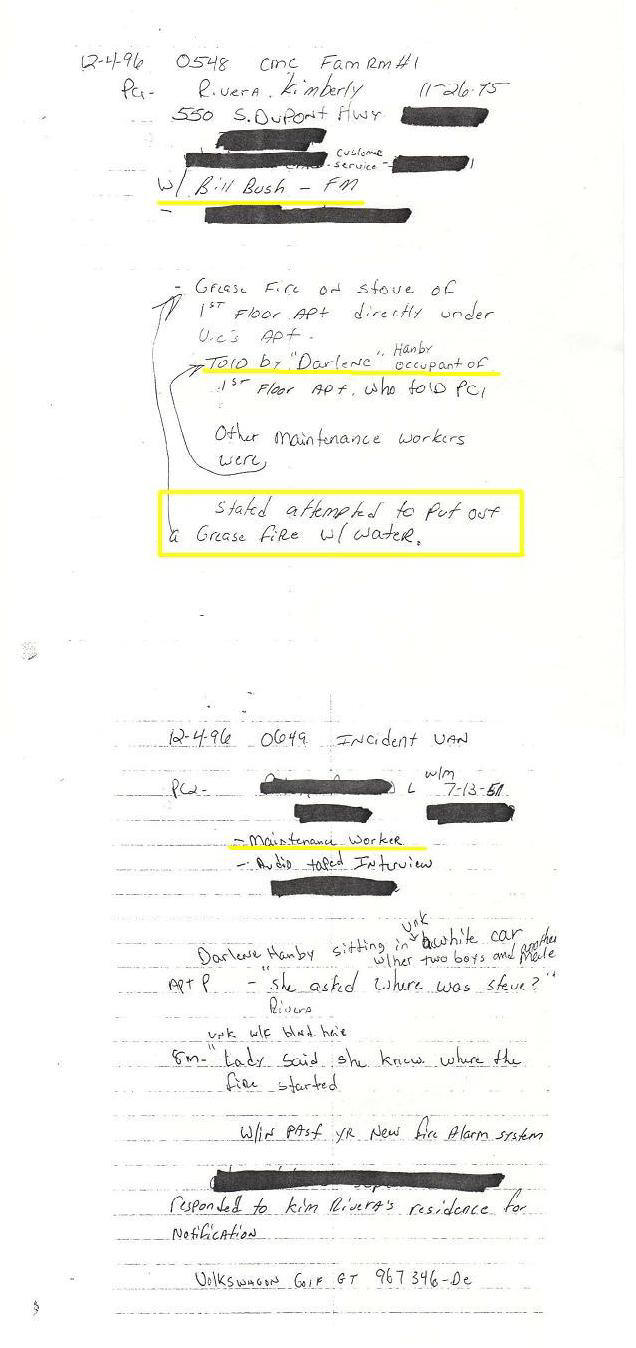 12-4-96 0548 CMC Fam Rm #1
PC1- Rivera, Kimberly 11-26-75
550 S. DuPont Hwy
Customer
service -
W/ Bill Bush - FM
-
- Grease Fire on stove of
1ST Floor Apt directly under
Vic's Apt.
Hanby
Told by "Darlene" occupant of
1ST Floor Apt. who told PC1
Other Maintenance workers
were,
Stated attempted to put out
a Grease fire w/ water.
12-4-96 0649 Incident Van
w/m
PC2- L 7-13-51
- Maintenance Worker
- Audio taped Interview
unk
Darlene Hanby sitting in white car
w/her two boys and another male
Apt P - "she asked where was Steve?"
Rivera
unk w/f blnd hair
8m- "Lady said she knew where the
fire started
W/in past yr New fire Alarm system
responded to Kim Rivera's residence for
Notification
Volkswagon Golf GT 967346-De